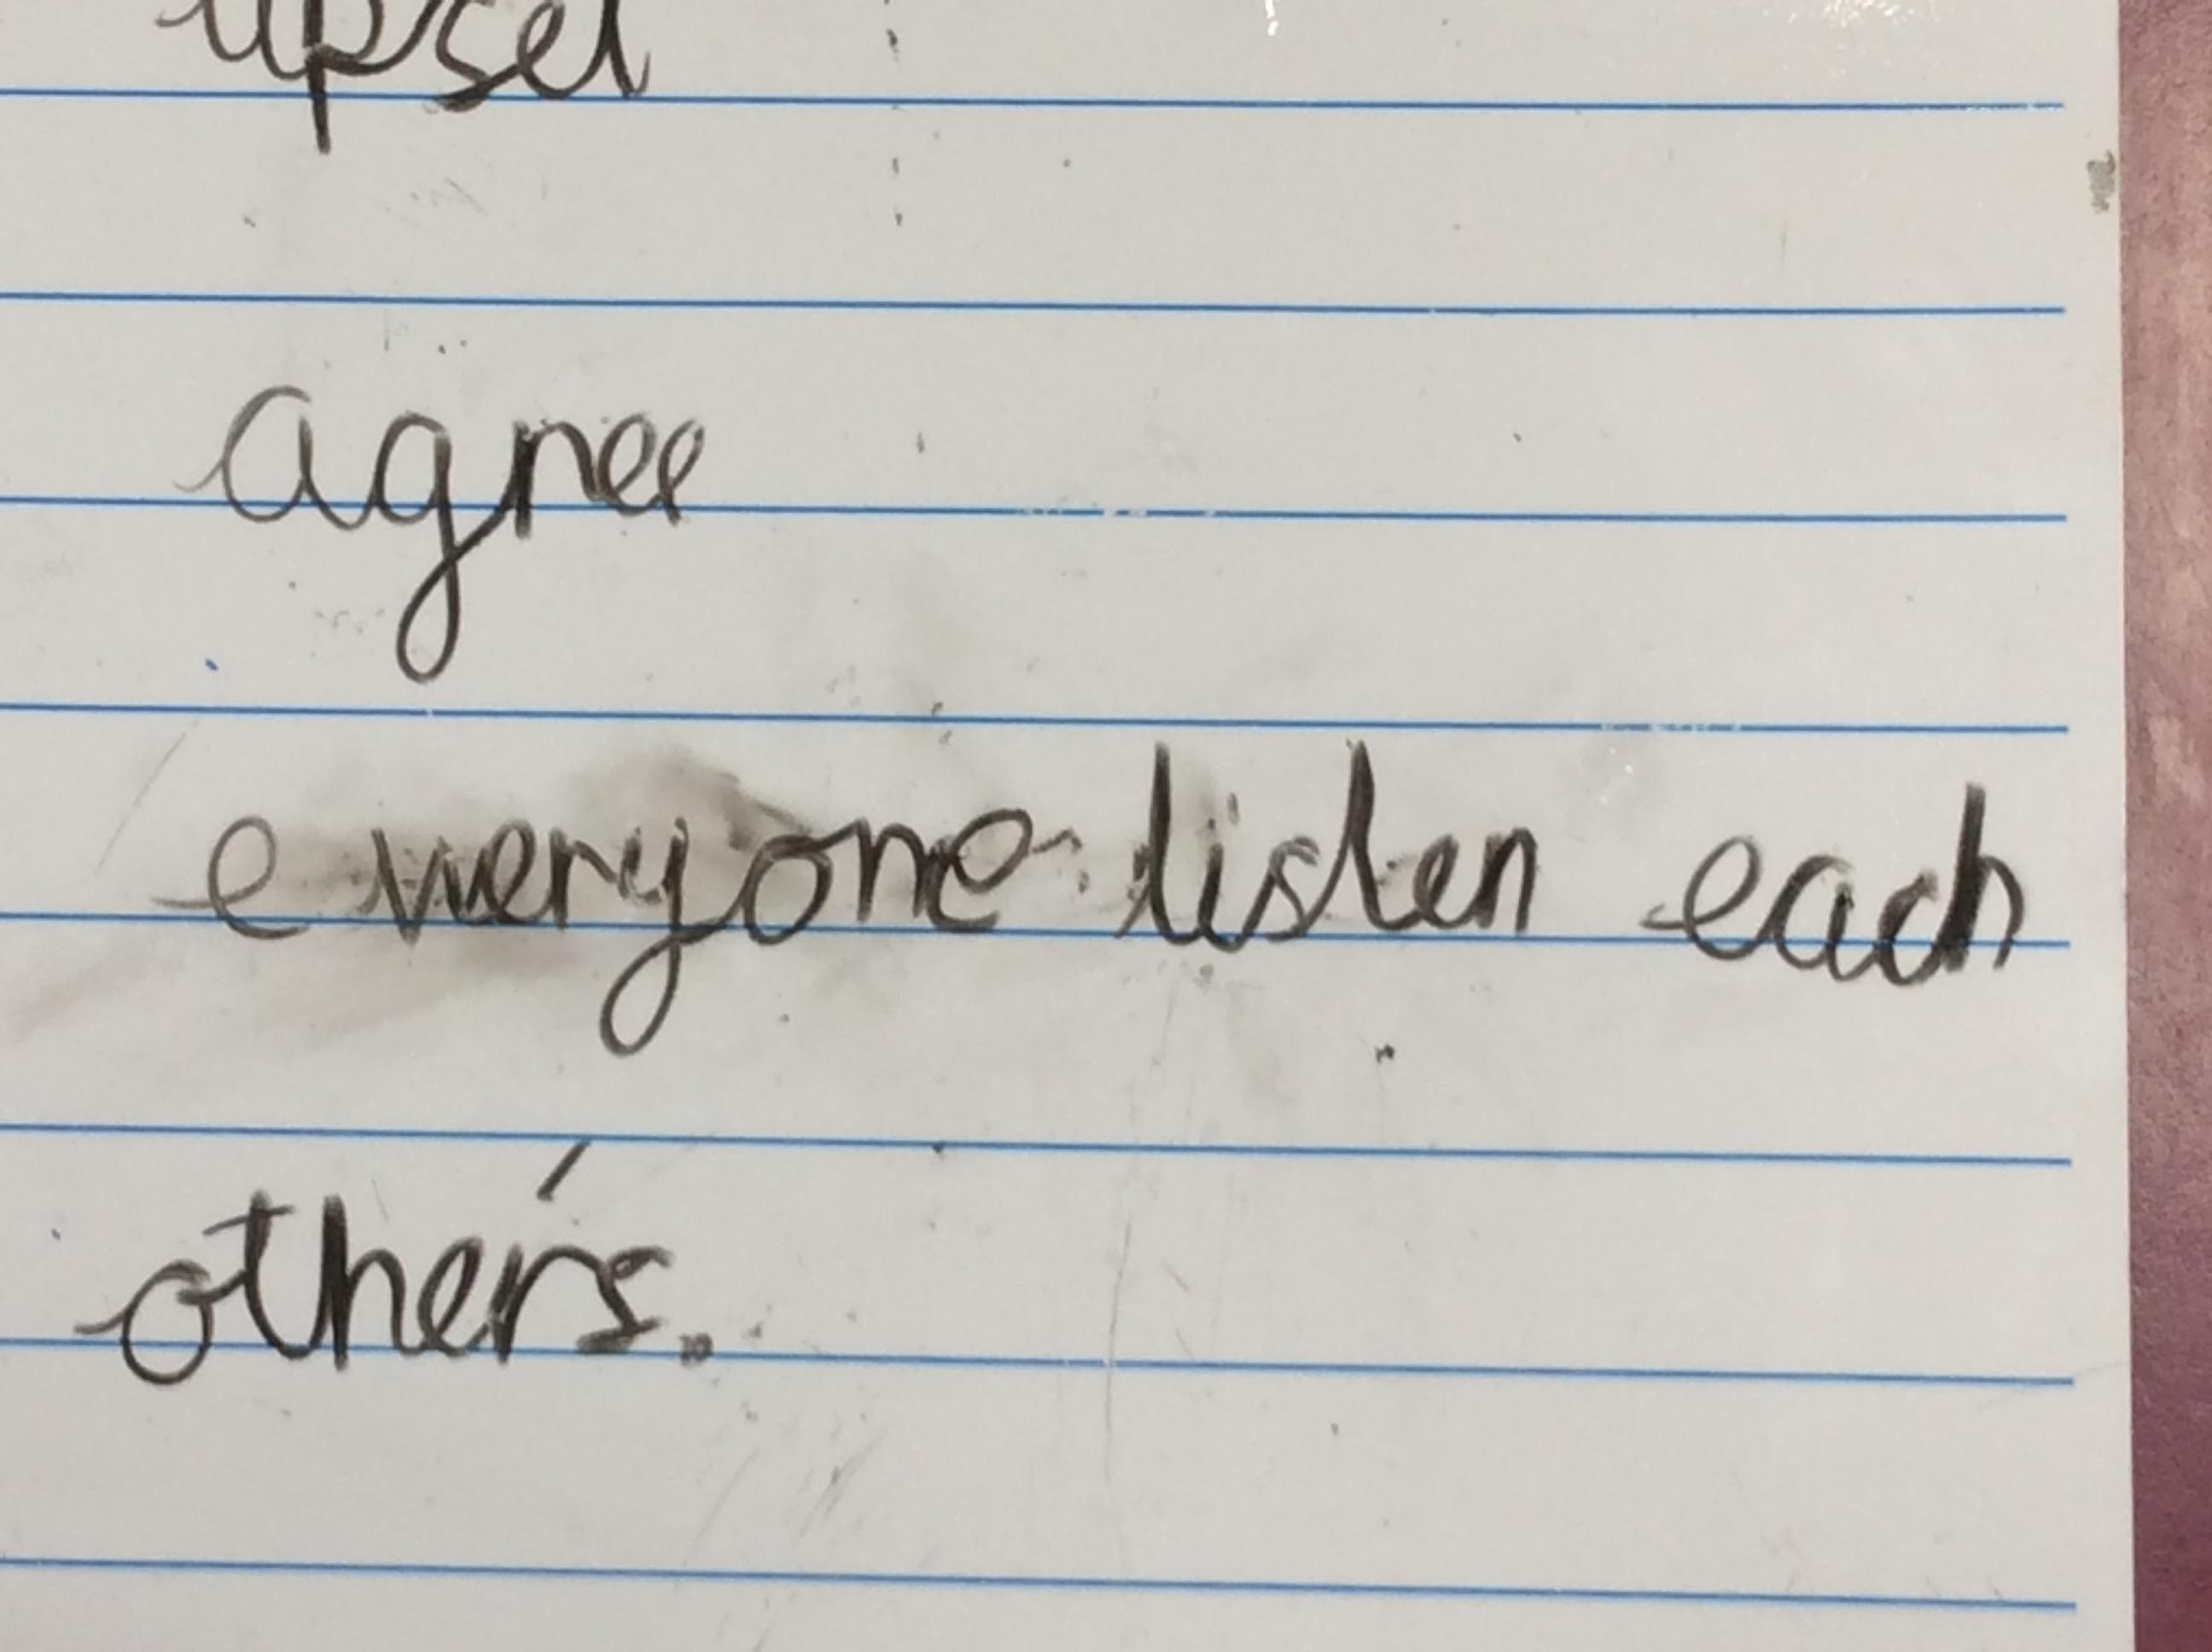 upset
agree
everyone listen each
other's.